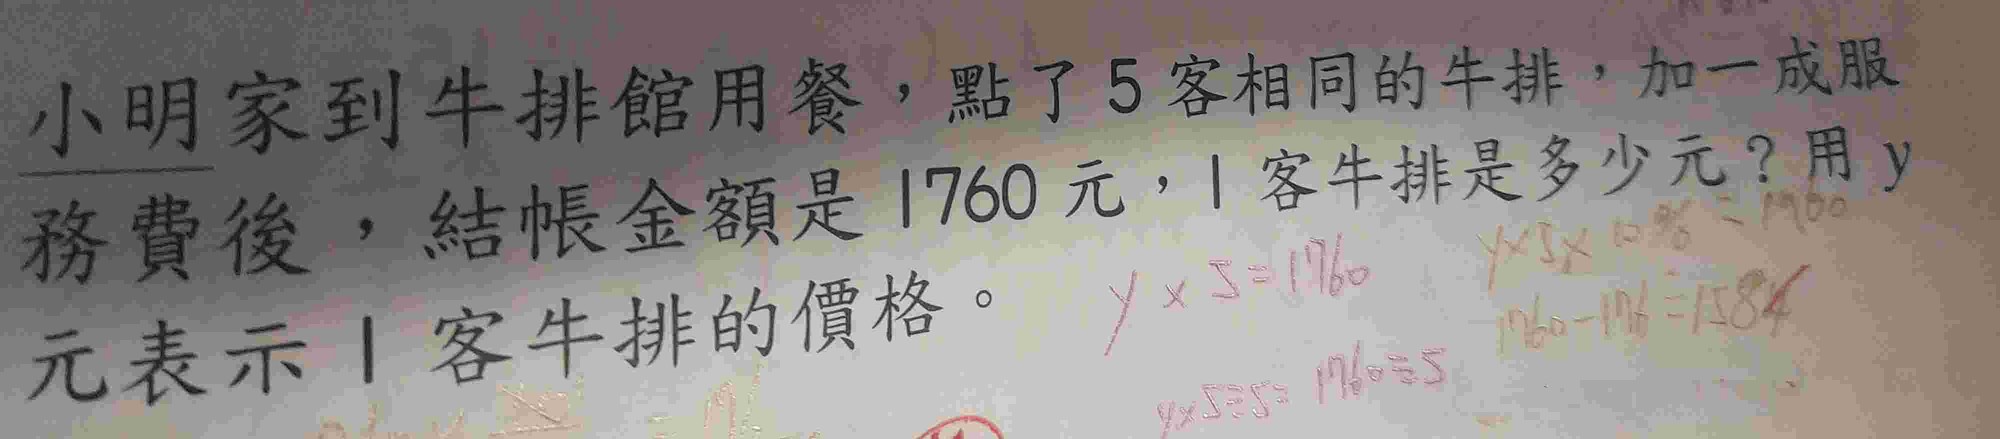 小明家到牛排館用餐，點了5客相同的牛排，加一成服
務費後，結帳金額是1760元，1客牛排是多少元？用y
元表示1客牛排的價格。
y×5=1760
y×5÷5=1760÷5
1760-176=1584